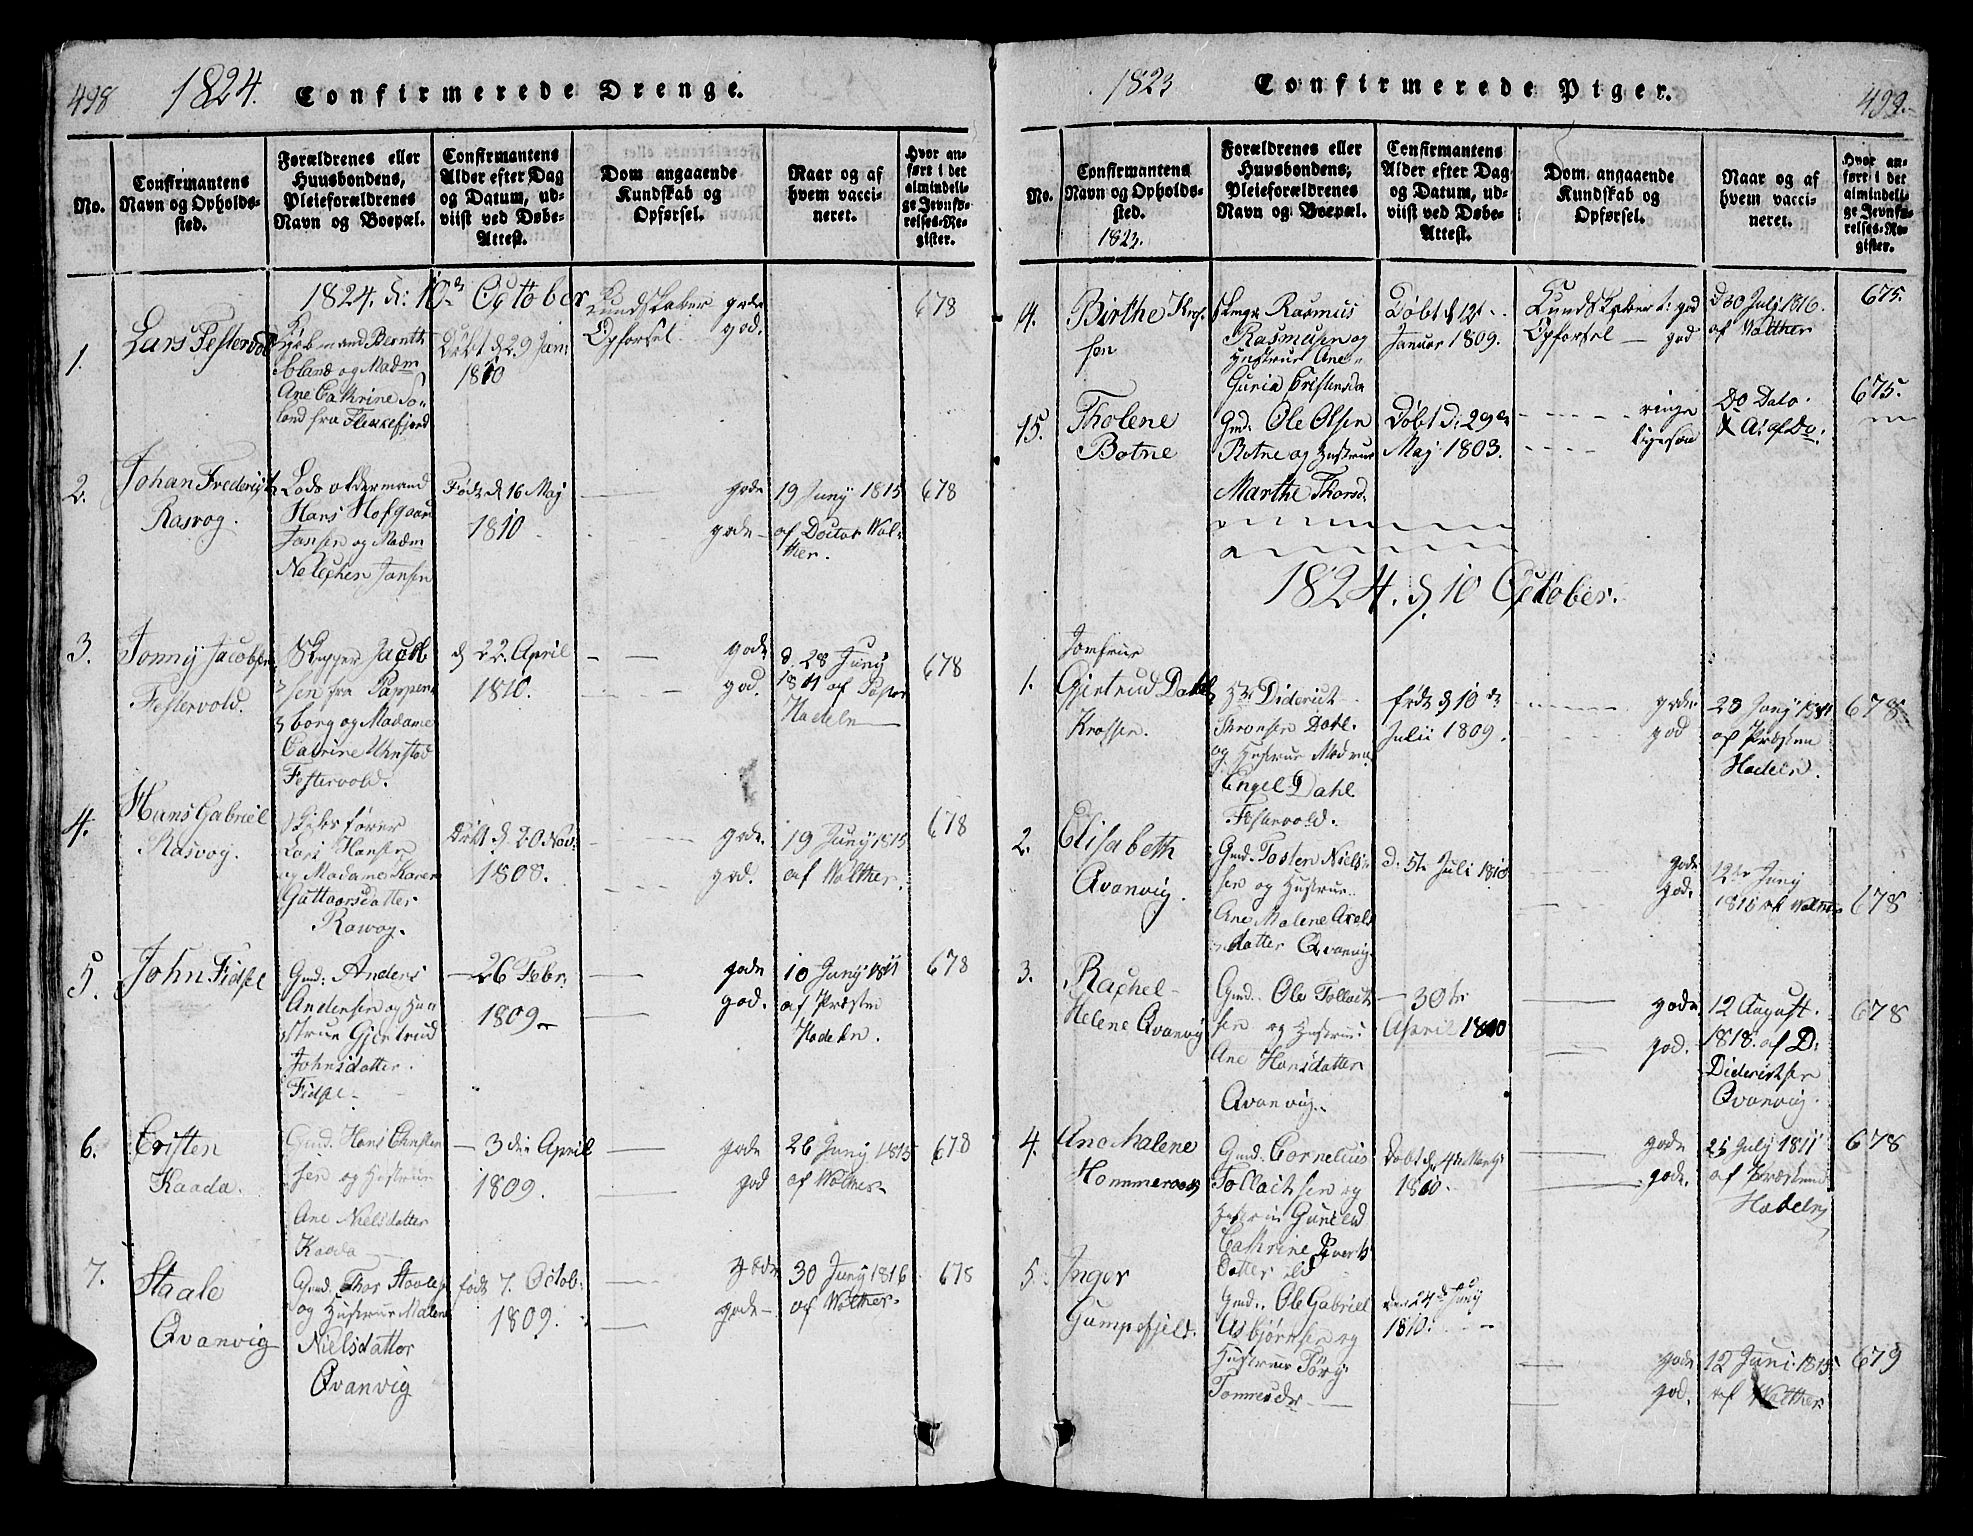 498 1824. Confirmerede Drenge.
No.
Confirmantens
Navn og Opholds-
sted.
Forældrenes eller
Huusbondens,
Pleieforældrenes
Navn og Boepæl.
Confirmantens
Alder efter Dag
og Datum, ud-
viist ved Døbe-
Attest.
Dom angaaende
Kundskab og
Opførsel.
Naar og af
hvem vacci-
neret.
Hvor an-
ført i det
almindeli-
ge Jevnfø-
relses-Re-
gister.
1824. d: 10de October
1.
Lars Festervold
Kjøbmand Berntz
Soland og Madm
Ane Cathrine So-
land fra Flekkefjord
Døbt d 29 Juni
1810
Kundskaber gode
Opførsel. god.
678
2.
Johan Frederigt
Rasvog.
Lods oldermand
Hans Hofgaard
Jansen og Madm
Jansen
Født d 16 Maj
1810
gode
gode
19 Juny 1815
af Doctor Wal-
ther.
678
3.
Jonny Jacobsen
Festervold.
Skipper Jacob
sen fra Pappen
borg og Madame
Catrine Uhnstad
Festervold.
d 22. April
1810.
gode
god.
d. 28 Juny
1811 af Pastor
Hadeln
678
4.
Hans Gabriel
Rasvog.
Skibsfører
Lars Hansen
og Madame Karen
Guttormsdatter
Rasvog.
Døbt d. 20 Nov:
1808.
gode.
god.
19 Juny 1815
af Walther.
678
5.
John Fidsel
Gmd: Anders
Andersen og Hu
strue Gjertrud
Johnsdatter.
Fidsel
26 Febr:
1809
gode
god.
10 Juny 1811
af Præsten
Hadeln.
678
6.
Cristen
Kaada.
Gmd. Hans Christen
sen og Hustrue
Ane Nielsdatter
Kaada
3die April
1809.
gode
god
26 Juny 1815
af Walther
678
7.
Staale
Qvanvig
Gmd. Thor Staales
og Hustrue Malene
Nielsdatter
Qvanvig
født 7. Octob:
1809.
gode
gode
30 Juny 1816
af Walther
678
1823 Confirmerede Piger. 499.
No.
Confirmantens
Navn og Opholds-
sted.
1823.
Forældrenes eller
Huusbondens,
Pleieforældrenes
Navn og Boepæl.
Confirmantens
Alder efter Dag
og Datum, ud-
viist ved Døbe-
Attest.
Dom angaaende
Kundskab og
Opførsel.
Naar og af
hvem vacci-
neret.
Hvor an-
ført i det
almindeli-
ge Jevnfø-
relses-Re-
gister.
14.
Birthe Kros-
sen
Rasmus
Rasmusen og
Hustrue Ane
Guria Cristensda
Døbt d 12t
Januar 1809.
Kundskaber t: god
Opførsel god
d 30 July 1816.
af Walther
675.
15.
Tholene
Botne
Gmd. Ole Olsen
Botne og Hustrue
Marthe Thorsd.
Døbt d: 29de
Maj 1803.
ringe
ligesaa
Do Dato.
& A: af Do.
675.
1824. d. 10 October.
1.
Jomfrue
Gjertrud Dahl
Krossen.
Hr Diderict
Thronsen Dahl.
og Hustrue Madm
Engel Dahl
Festervold.
født d 10de
Julii 1809.
gode
god
28 Juny 1811
af Præsten
Hadeln.
678
2.
Elisabeth
Qvanvig.
Gmd. Tosten Niels-
sen og Hustrue
Ane Malene Axels
datter Qvanvig
d. 5te Juli 1810
gode
god.
12te Juny
1815 af Walther
678
3.
Rachel
Helene Qvanvig
Gmd. Ole Tollach
sen og Hustrue
Ane Hansdatter
Qvanvig.
30te
April 1810
gode
god.
12 August.
1818. af D:
Diderichsen
Qvanvig.
678
4.
Ane Malene
Hommeraas
Gmd. Cornelius
Tollachsen og
Hustrue Guneld
Cathrine Siverts
datter ibd
Døbt d. 4de Marty
1810.
gode
gode.
25 July 1811
af Præsten
Hadeln
678
5.
Inger
Gumpefjeld.
Gmd. Ole Gabriel
Asbjørnsen og
Hustrue Tørg
Tønnesdr
den 24de Juny
1810.
gode
god.
12 Juni 1815
af Walther
679